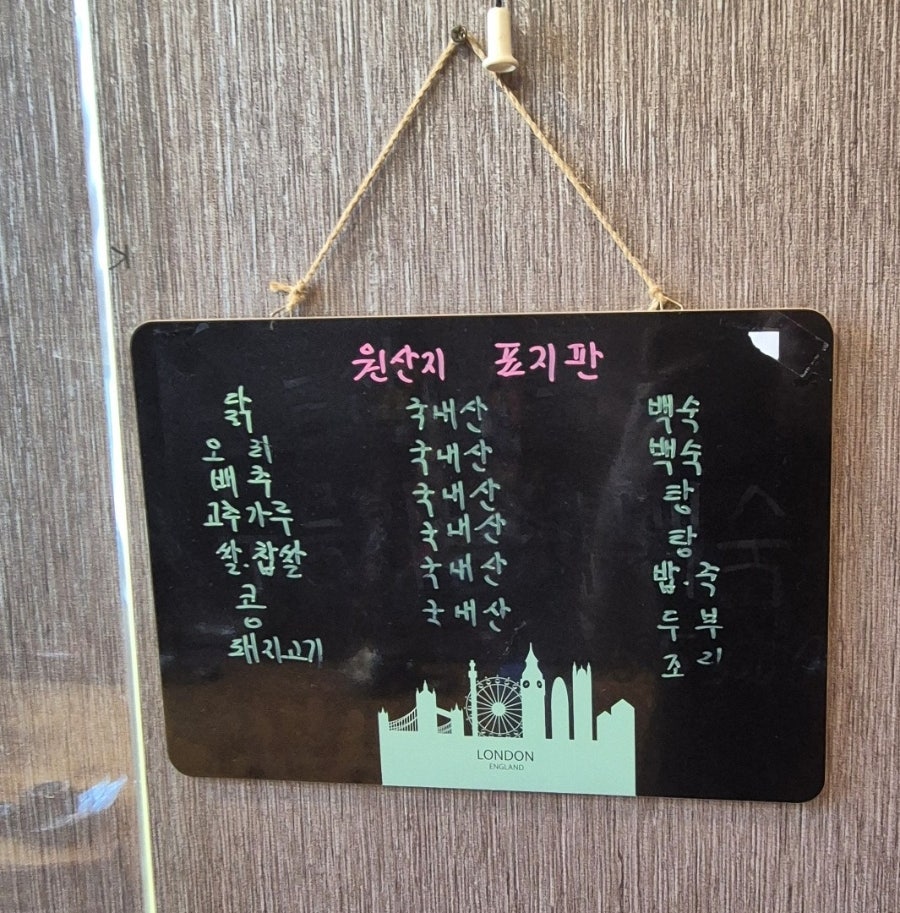 원산지 표지판
닭 국내산 백숙
오리 국내산 백숙
배추 국내산 탕
고추가루 국내산 탕
쌀.찹쌀 국내산 밥.죽
콩 국내산 두부
돼지고기 조리
LONDON
ENGLAND